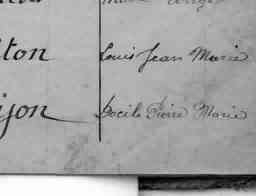 lton Louis Jean Marie
ijon Docile Pierre Marie